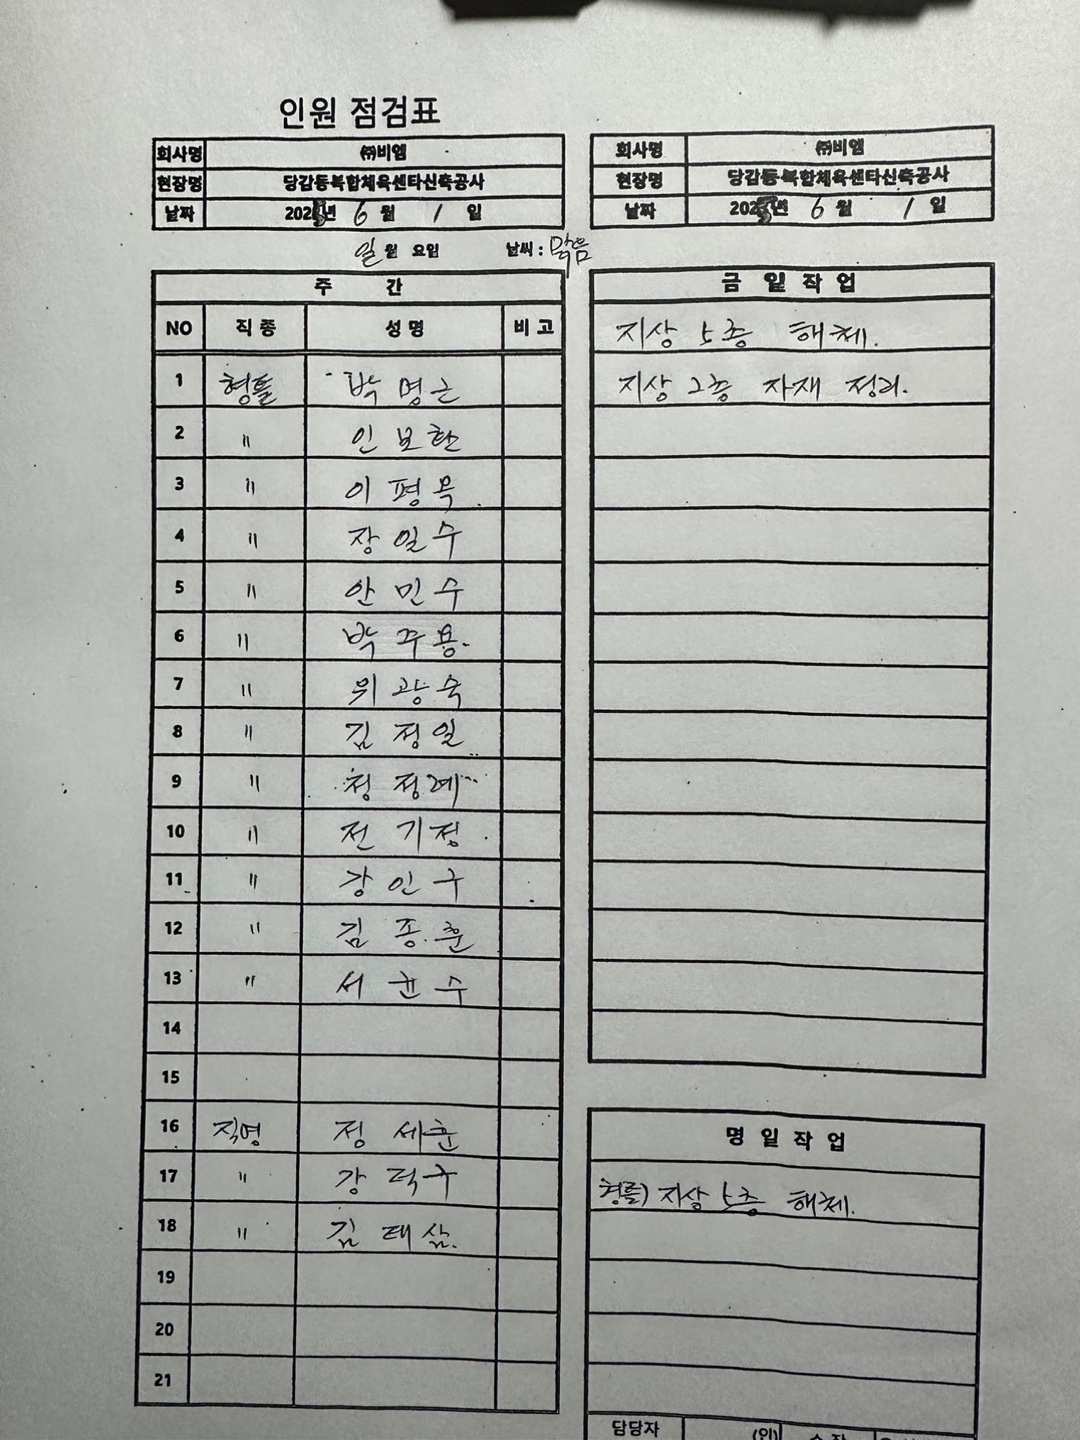 인원 점검표
회사명 ㈜비엠
현장명 당감동복합체육센타신축공사
날짜 2025년 6월 1일
일월 요일 날씨 : 맑음
주 간
NO 직종 성명 비고
1 형틀 박명근
2 〃 인보환
3 〃 이평목
4 〃 장일수
5 〃 안민수
6 〃 박주용
7 〃 위광숙
8 〃 김정일
9 〃 정정례
10 〃 전기정
11 〃 강인구
12 〃 김종훈
13 〃 서균수
14
15
16 직영 정세훈
17 〃 강덕구
18 〃 김태삼
19
20
21
회사명 ㈜비엠
현장명 당감동복합체육센타신축공사
날짜 2025년 6월 1일
금일작업
지상 5층 해체.
지상 2층 자재 정리.
명일작업
형틀) 지상 5층 해체.
담당자 (인) 소장